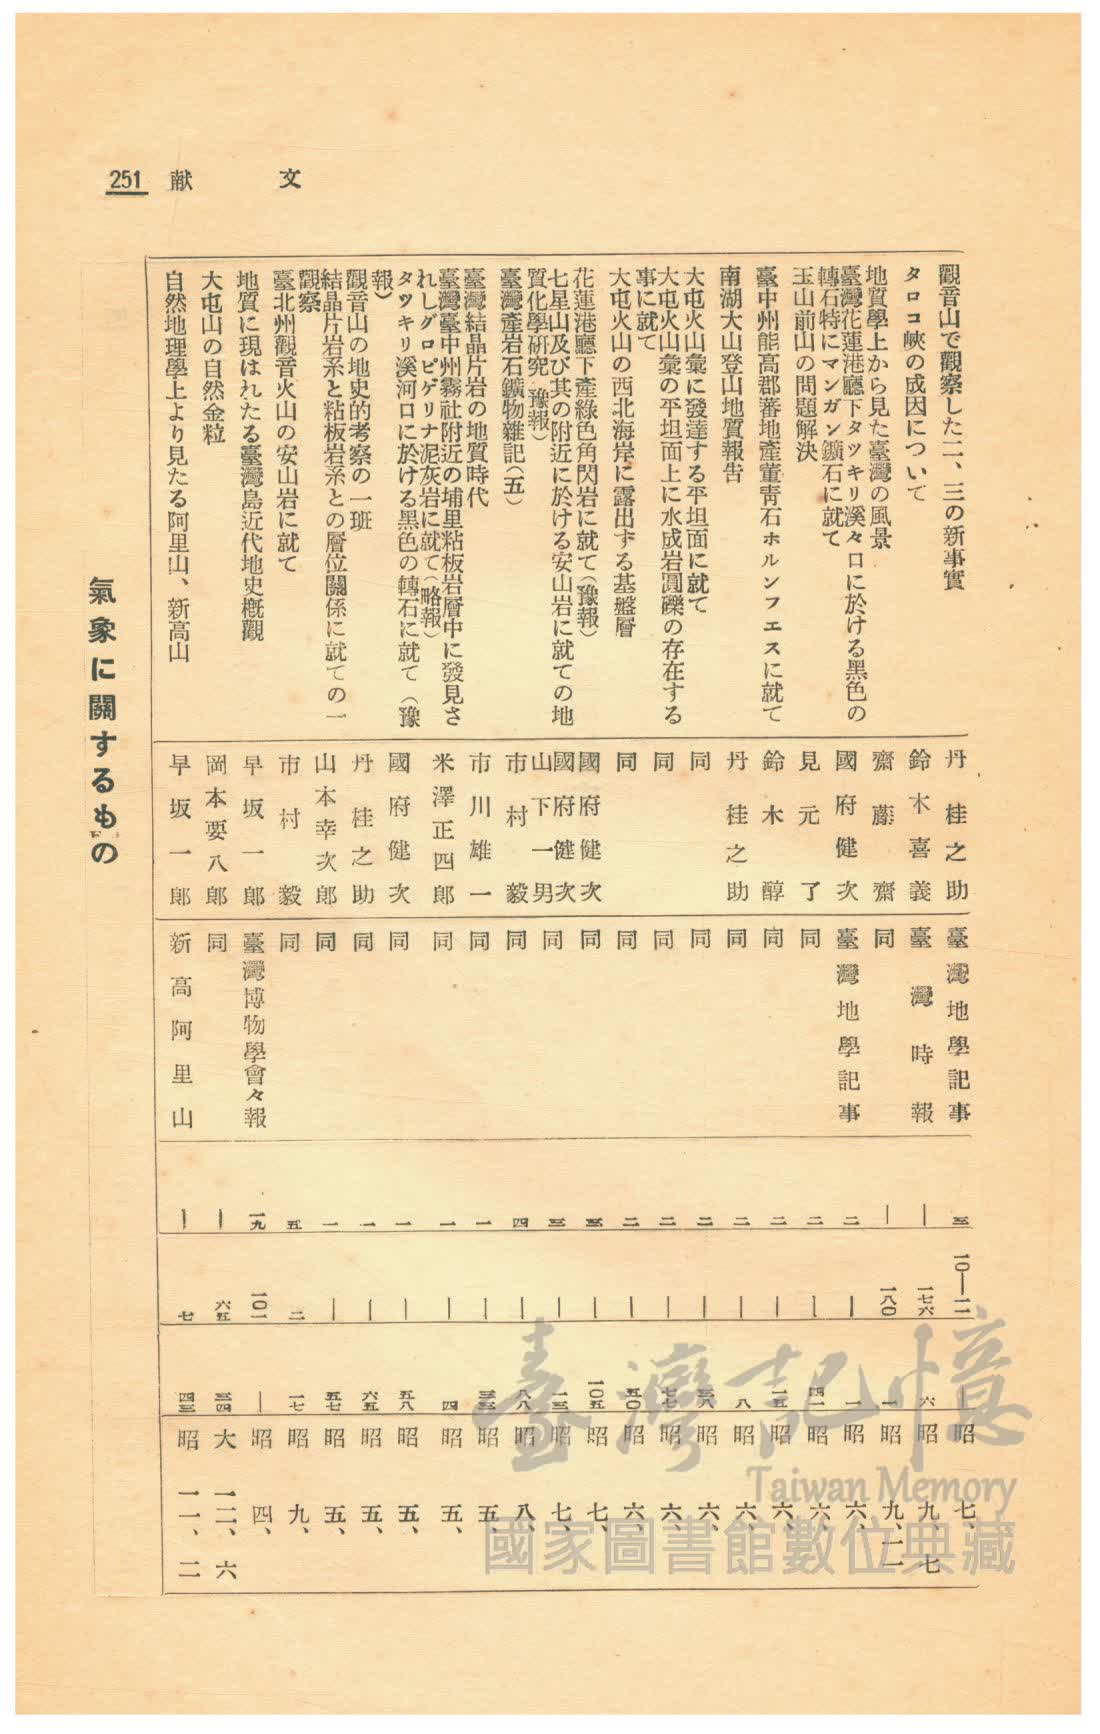 251 献文
觀音山で觀察した二、三の新事實 丹桂之助 臺灣地學記事 三 一〇—一二 — 昭七、
タロコ峽の成因について 鈴木喜義 臺灣時報 — 一七六 六 昭九、七
地質學上から見た臺灣の風景 齋藤齋 同 — 一八〇 一 昭九、一一
臺灣花蓮港廳下タツキリ溪々口に於ける黑色の
轉石特にマンガン鑛石に就て 國府健次 臺灣地學記事 二 — 一 昭六、
玉山前山の問題解決 見元了 同 二 — 四一 昭六、
臺中州能高郡蕃地產董靑石ホルンフエスに就て 鈴木醇 同 二 — 一五 昭六、
南湖大山登山地質報吿 丹桂之助 同 二 — 八 昭六、
大屯火山彙に發達する平坦面に就て 同 同 二 — 三八 昭六、
大屯火山彙の平坦面上に水成岩圓礫の存在する
事に就て 同 同 二 — 七七 昭六、
大屯火山の西北海岸に露出する基盤層 同 同 二 — 五〇 昭六、
花蓮港廳下產綠色角閃岩に就て（豫報） 國府健次 同 三 — 一〇五 昭七、
七星山及び其の附近に於ける安山岩に就ての地
質化學硏究 豫報） 國府健次 山下一男 同 三 — 一三 昭七、
臺灣產岩石鑛物雜記（五） 市村毅 同 四 — 八八 昭八、
臺灣結晶片岩の地質時代 市川雄一 同 一 — 三三 昭五、
臺灣臺中州霧社附近の埔里粘板岩層中に發見さ
れしグロビゲリナ泥灰岩に就て（略報） 米澤正四郞 同 一 — 四 昭五、
タツキリ溪河口に於ける黑色の轉石に就て（豫
報） 國府健次 同 一 — 五八 昭五、
觀音山の地史的考察の一班 丹桂之助 同 一 — 六五 昭五、
結晶片岩系と粘板岩系との層位關係に就ての一
觀察 山本幸次郞 同 一 — 五七 昭五、
臺北州觀音火山の安山岩に就て 市村毅 同 五 二 一七 昭九、
地質に現はれたる臺灣島近代地史槪觀 早坂一郞 臺灣博物學會々報 一九 一〇一 — 昭四、
大屯山の自然金粒 岡本要八郞 同 — 六五 三四 大一二、六
自然地理學上より見たる阿里山、新高山 早坂一郞 新高阿里山 — 七 四三 昭一一、二
氣象に關するもの
臺灣記憶
Taiwan Memory
國家圖書館數位典藏